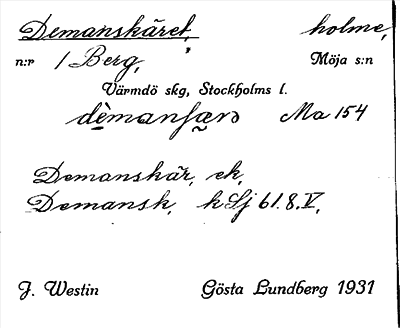 Demanskäret, holme,
n:r 1 Berg, Möja s:n
Värmdö skg, Stockholms l.
Ma 154
Demanskär, ek,
Demansk, k Sj 61.8.V,
J. Westin Gösta Lundberg 1931